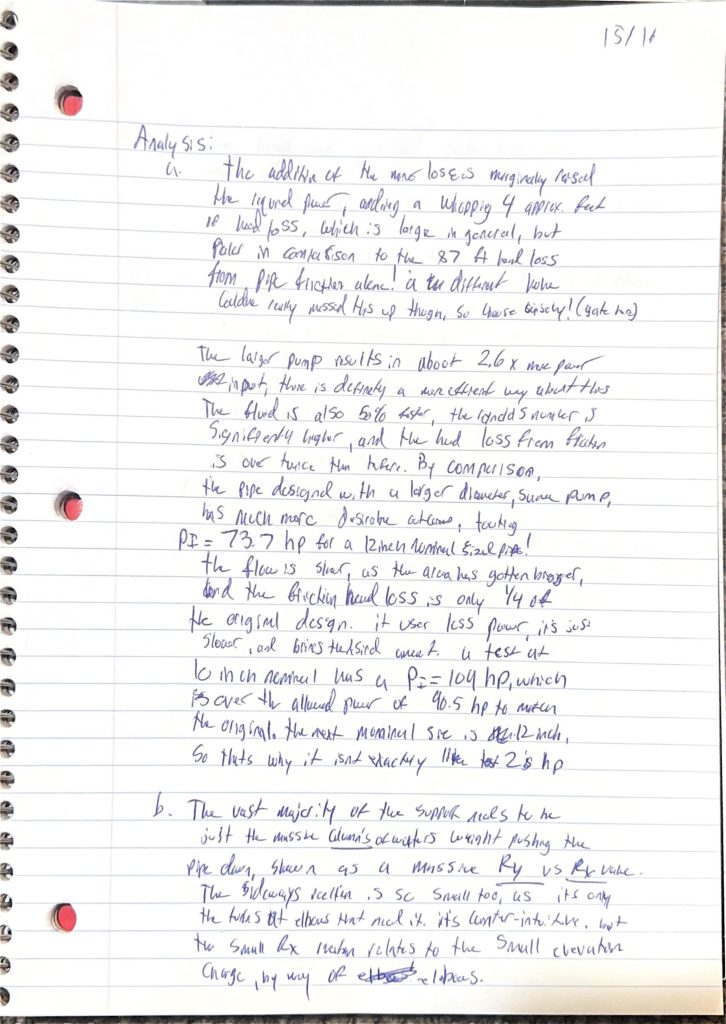 15/16
Analysis:
a. the addition of the minor losses marginally raised
the required power, adding a whopping 4 approx. feet
of head loss, which is large in general, but
pales in comparison to the 87 ft head loss
from pipe friction alone! a different valve
could've really messed this up though, so choose wisely! (gate)
The larger pump results in about 2.6x more power
input, there is definetly a more efficient way about this
The fluid is also 50% faster, the number is
significently higher, and the head loss from friction
is over twice than before. By comparison,
the pipe designed with a larger diameter, same pump,
has much more desirable outcome, touting
PI = 73.7 hp for a 12 inch nominal sized pipe!
the flow is slower, as the area has gotten bigger,
and the friction head loss is only 1/4 of
the original design. it uses less power, it's just
slower, and brings the desired amount. a test at
10 inch nominal has a PI = 104 hp, which
is over the allowed power of 90.5 hp to match
the original. the next nominal size is 12 inch,
So thats why it isnt exactly like test 2's hp
b. The vast majority of the support needs to be
just the massive column's of waters weight pushing the
pipe down, shown as a massive Ry vs Rx value.
The sideways reaction is so small too, as its only
the turns at elbows that need it. it's counter-intuitive, but
the small Rx reaction relates to the small elevation
change, by way of elbows.